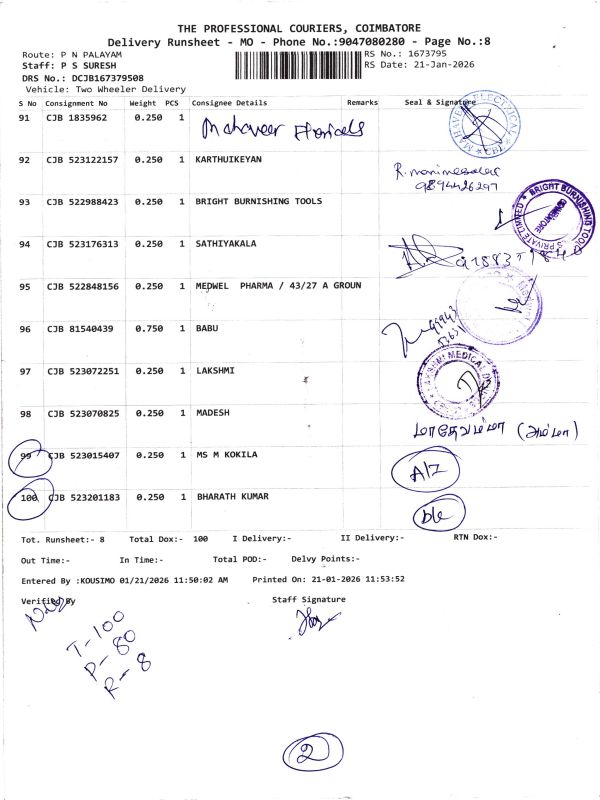 THE PROFESSIONAL COURIERS, COIMBATORE
Delivery Runsheet - MO - Phone No.:9047080280 - Page No.:8
Route: P N PALAYAM
RS No.: 1673795
Staff: P S SURESH
RS Date: 21-Jan-2026
DRS No.: DCJB167379508
Vehicle: Two Wheeler Delivery
S No Consignment No Weight PCS Consignee Details Remarks Seal & Signature
91 CJB 1835962 0.250 1 Mahaveer
92 CJB 523122157 0.250 1 KARTHUIKEYAN
9894426297
93 CJB 522988423 0.250 1 BRIGHT BURNISHING TOOLS
BRIGHT BURNISHING TOOLS PRIVATE LIMITED
COIMBATORE
94 CJB 523176313 0.250 1 SATHIYAKALA
95 CJB 522848156 0.250 1 MEDWEL PHARMA / 43/27 A GROUN
96 CJB 81540439 0.750 1 BABU
97 CJB 523072251 0.250 1 LAKSHMI
LAKSHMI MEDICAL
98 CJB 523070825 0.250 1 MADESH
மாதேவம்மா (அம்மா)
99 CJB 523015407 0.250 1 MS M KOKILA
A/Z
100 CJB 523201183 0.250 1 BHARATH KUMAR
ble
Tot. Runsheet:- 8 Total Dox:- 100 I Delivery:- II Delivery:- RTN Dox:-
Out Time:- In Time:- Total POD:- Delvy Points:-
Entered By :KOUSIMO 01/21/2026 11:50:02 AM Printed On: 21-01-2026 11:53:52
Verified By Staff Signature
T-100
P-80
R-8
2